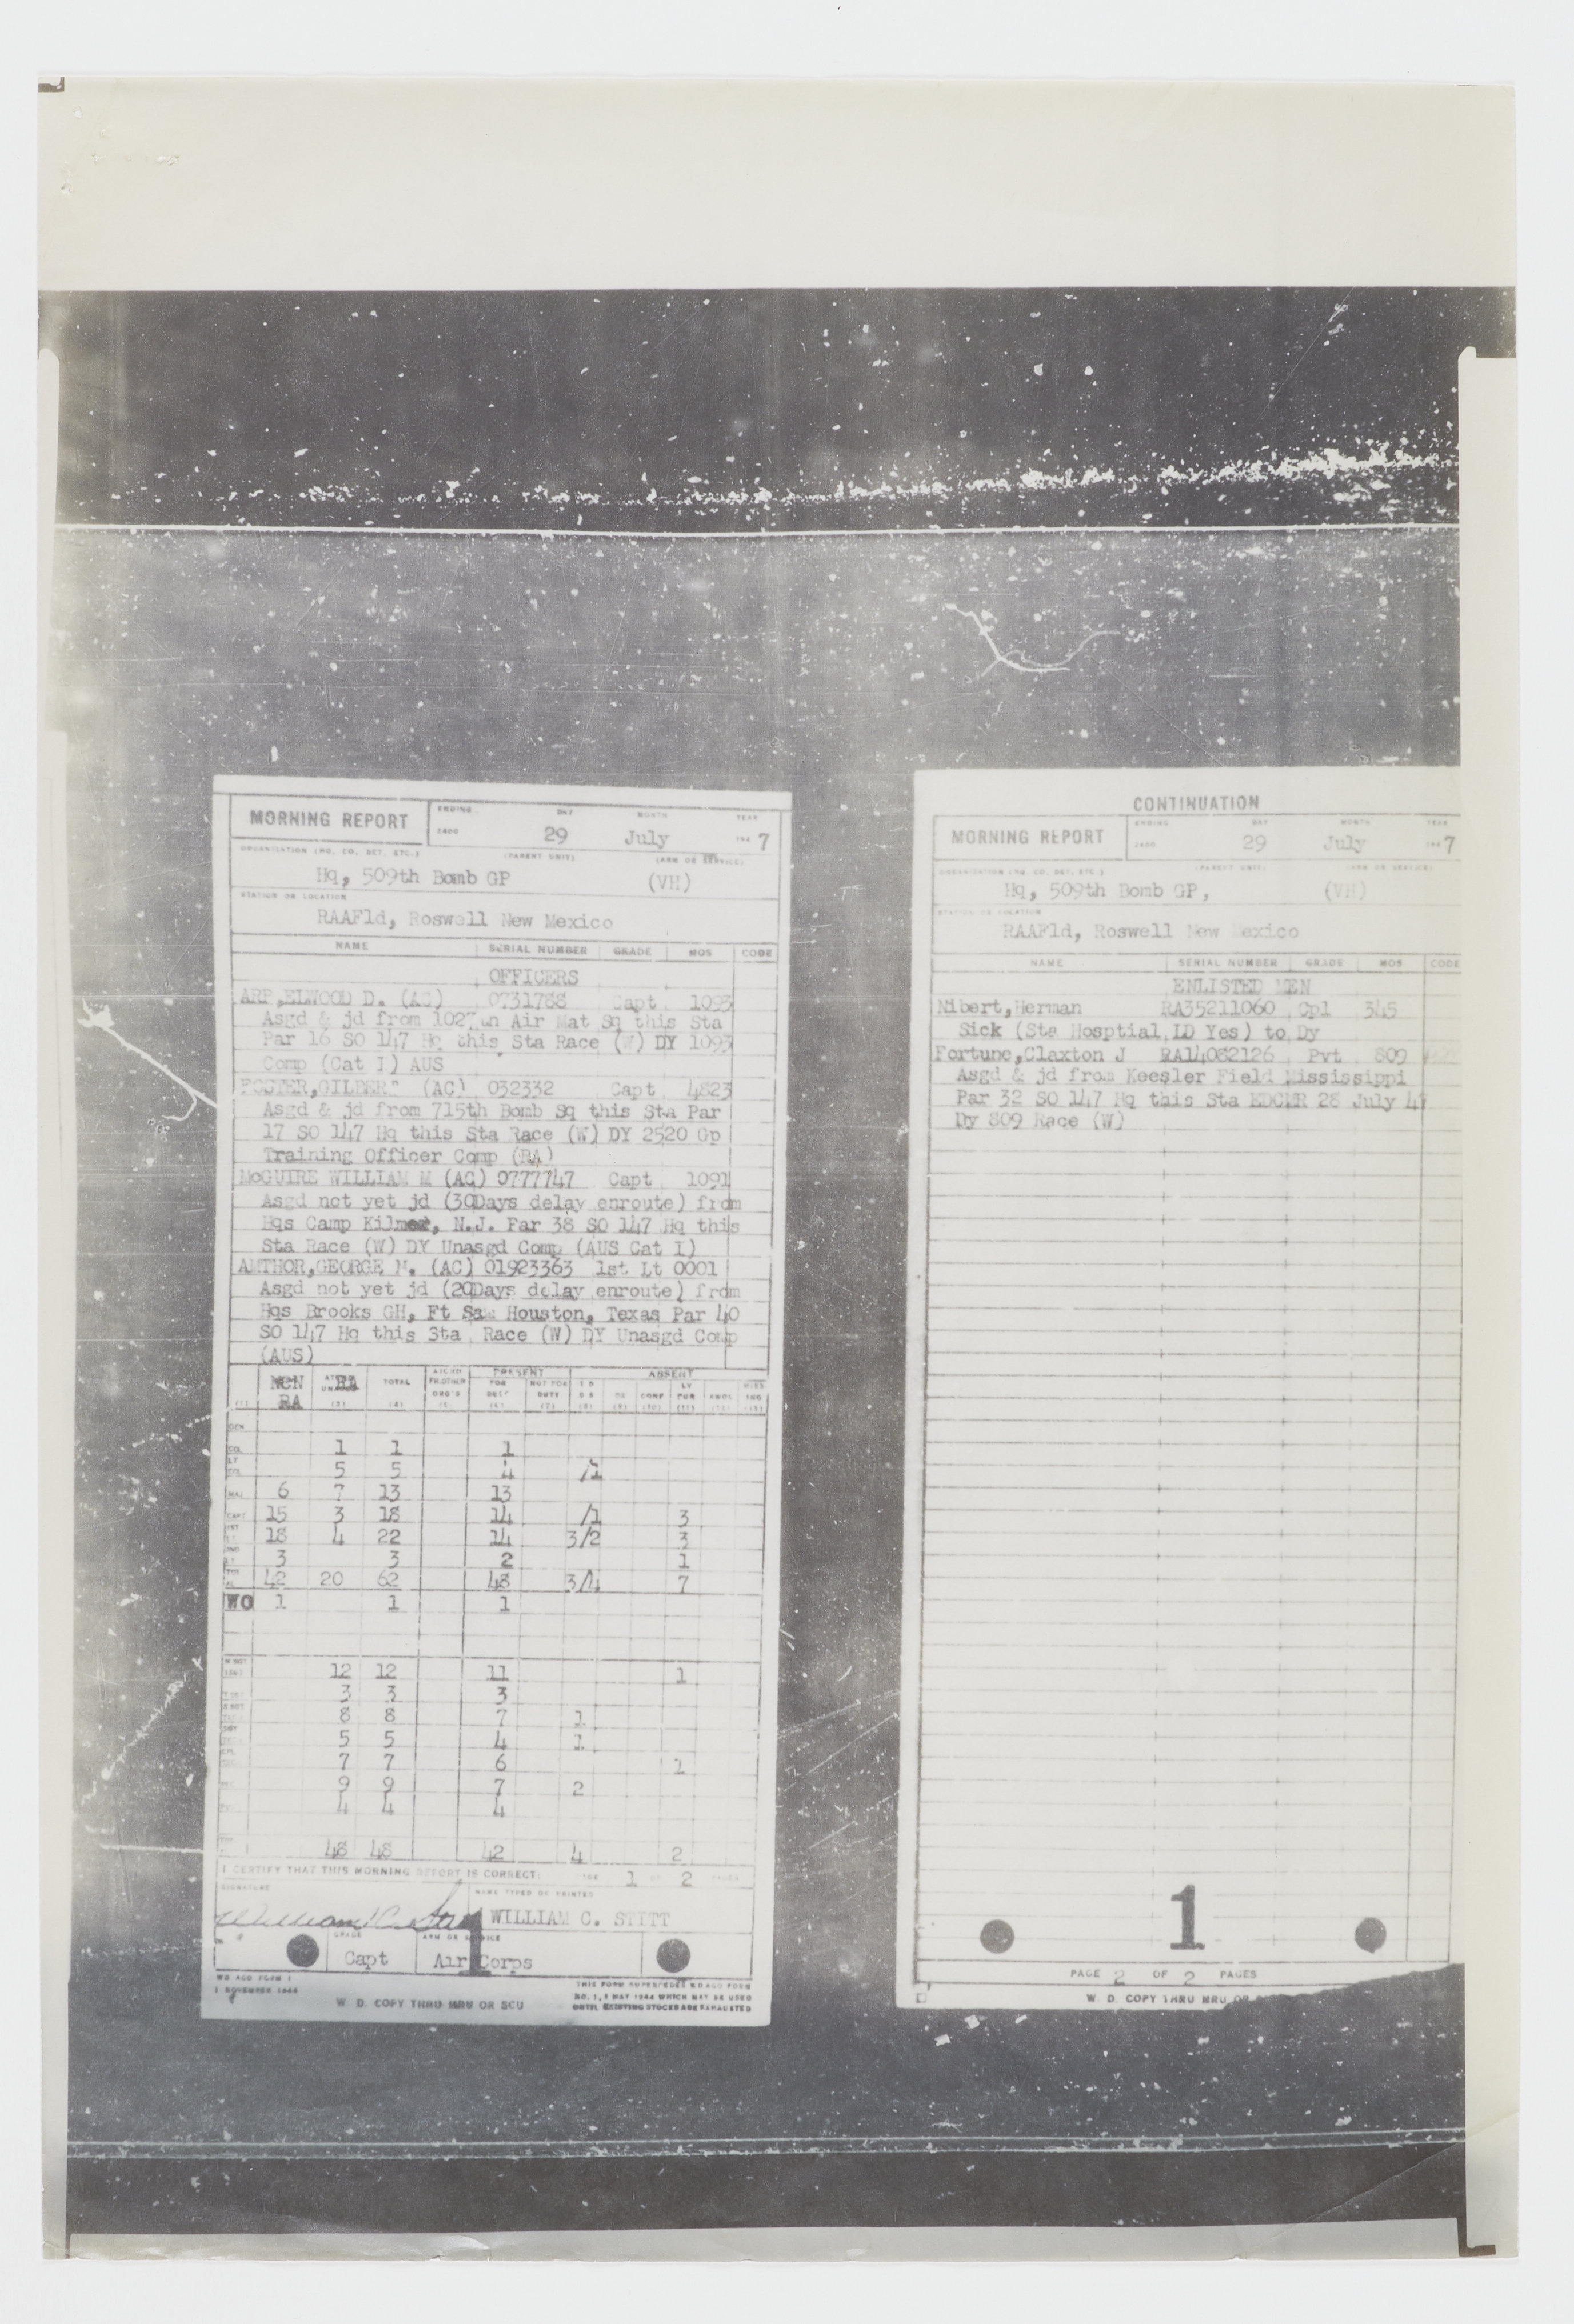 MORNING REPORT
ENDING DAY MONTH YEAR
2400 29 July 194 7
ORGANIZATION (NO. CO. DET. ETC.) (PARENT UNIT) (ARM OR SERVICE)
Hq, 509th Bomb GP (VH)
STATION OR LOCATION
RAAFld, Roswell New Mexico
NAME SERIAL NUMBER GRADE MOS CODE
OFFICERS
ARP,ELWOOD D. (AC) 0731788 Capt 1093
Asgd & jd from 1027th Air Mat Sq this Sta
Par 16 SO 147 Hq this Sta Race (W) DY 1093
Comp (Cat I) AUS
FOSTER,GILBERT (AC) 032332 Capt 4823
Asgd & jd from 715th Bomb Sq this Sta Par
17 SO 147 Hq this Sta Race (W) DY 2520 Gp
Training Officer Comp (RA)
McGUIRE WILLIAM M (AC) 0777747 Capt 1091
Asgd not yet jd (30Days delay enroute) from
Hqs Camp Kilmer, N.J. Par 38 SO 147 Hq this
Sta Race (W) DY Unasgd Comp (AUS Cat I)
AMTHOR,GEORGE M. (AC) 01923363 1st Lt 0001
Asgd not yet jd (20Days delay enroute) from
Hqs Brooks GH, Ft Sam Houston, Texas Par 40
SO 147 Hq this Sta Race (W) DY Unasgd Comp
(AUS)
PRESENT ABSENT
NON RA RA TOTAL FOR DUTY NOT FOR DUTY CONF
GEN
COL 1 1 1
LT COL 5 5 4 /1
MAJ 6 7 13 13
CAPT 15 3 18 14 /1 3
1ST LT 18 4 22 14 3/2 3
2ND LT 3 3 2 1
42 20 62 48 3/4 7
WO 1 1 1
12 12 11 1
3 3 3
8 8 7 1
5 5 4 1
7 7 6 1
9 9 7 2
4 4 4
48 48 42 4 2
I CERTIFY THAT THIS MORNING REPORT IS CORRECT: PAGE 1 OF 2 PAGES
SIGNATURE NAME TYPED OR PRINTED
William C. Stitt WILLIAM C. STITT
GRADE ARM OR SERVICE
Capt Air Corps
1
WD AGO FORM 1
1 NOVEMBER 1944
W. D. COPY THRU MRU OR SCU
THIS FORM SUPERSEDES WD AGO FORM
NO. 1, 1 MAY 1944 WHICH MAY BE USED
UNTIL EXISTING STOCKS ARE EXHAUSTED
CONTINUATION
MORNING REPORT
ENDING DAY MONTH YEAR
2400 29 July 194 7
ORGANIZATION (NO. CO. DET. ETC.) (PARENT UNIT) (ARM OR SERVICE)
Hq, 509th Bomb GP, (VH)
STATION OR LOCATION
RAAFld, Roswell New Mexico
NAME SERIAL NUMBER GRADE MOS CODE
ENLISTED MEN
Nibert,Herman RA35211060 Cpl 345
Sick (Sta Hosptial LD Yes) to Dy
Fortune,Claxton J RA14082126 Pvt 809
Asgd & jd from Keesler Field Mississippi
Par 32 SO 147 Hq this Sta EDCMR 28 July 47
Dy 809 Race (W)
1
PAGE 2 OF 2 PAGES
W. D. COPY THRU MRU OR